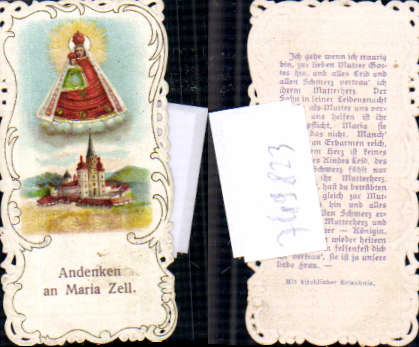 Andenken
an Maria Zell.
Ich gehe wenn ich traurig
bin, zur lieben Mutter Got-
tes hin, und alles Leid und
allen Schmerz vertrau' ich
ihrem Mutterherz. Der
Sohn in seiner Leidensnacht
als Mutter uns ver-
uns helfen ist ihr
pflicht, Maria sie
das nicht. Manch'
an Erbarmen reich,
Herz ist keines
Kindes Leid, des
Schmerz fühlt nur
ihr Mutterherz.
hast du betrübten
gleich zur Mut-
hin und alles
len Schmerz er-
Mutterherz und
Königin.
wieder heitern
felsenfest dich
vertrau', sie ist ja unsre
liebe Frau. —
Mit kirchlicher Erlaubnis.
749823